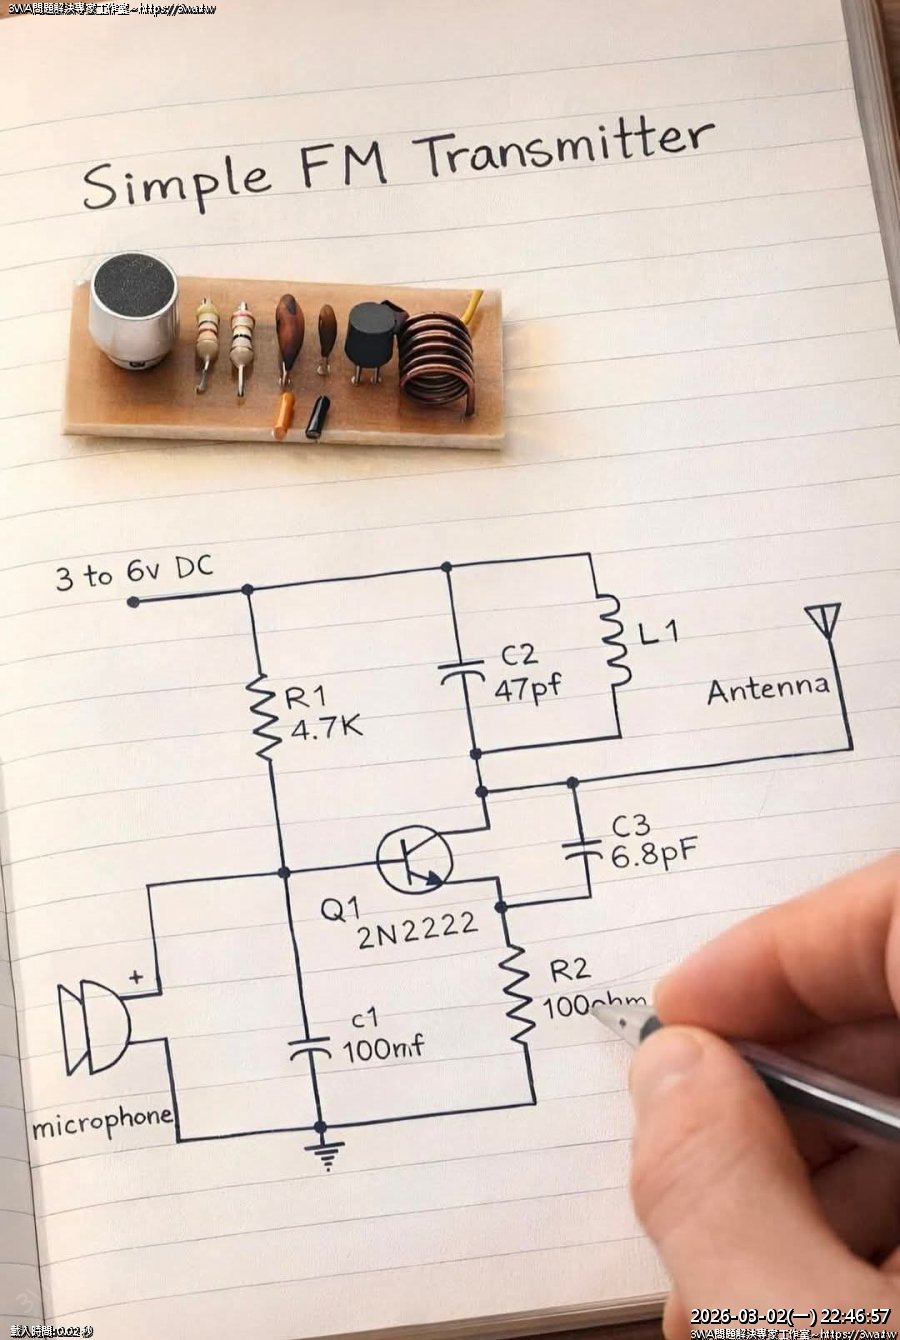 3WA問題解決專家工作室~https://3wa.tw
Simple FM Transmitter
3 to 6v DC
R1
4.7K
C2
47pf
L1
Antenna
C3
6.8pF
Q1
2N2222
+
R2
100ohm
c1
100mf
microphone
載入時間:0.02 秒
2026-03-02(一) 22:46:57
3WA問題解決專家工作室~https://3wa.tw